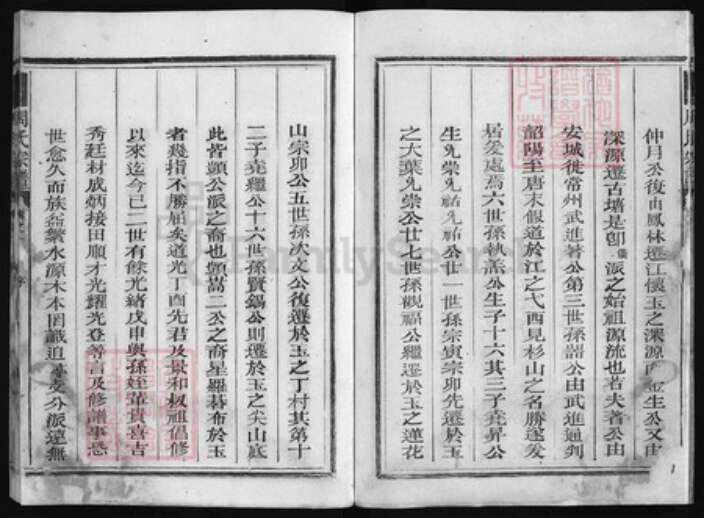 仲月公復由鳳林遷江懷玉之深源而生公又由
深源遷古墻是卽派之始祖源流也若夫著公由
安城徙常州武進著公第三世孫韶公由武進通判
韶陽至唐末假道於江之弋西見杉山之名勝遂爰
居爰處焉六世孫執羔公生子十六其三子堯昇公
生允崇允祐允祐公廿一世孫宗寅宗卯先遷於玉
之大葉允崇公廿七世孫觀福公繼遷於玉之蓮花
山宗卯公五世孫次文公復遷於玉之丁村其第十
二子堯繼公十六世孫賢錫公則遷於玉之尖山底
此皆顗公派之裔也顗嵩二公之裔星羅碁布於玉
者幾指不勝屈矣道光丁酉先君及景和叔祖倡修
以來迄今已二世有餘光緒戊申與孫姪輩貴喜吉
秀廷材成炳接田順才光耀光登等言及修譜事恐
世愈久而族益繁水源木本罔識追分派遠無
周氏宗譜
FamilySearch